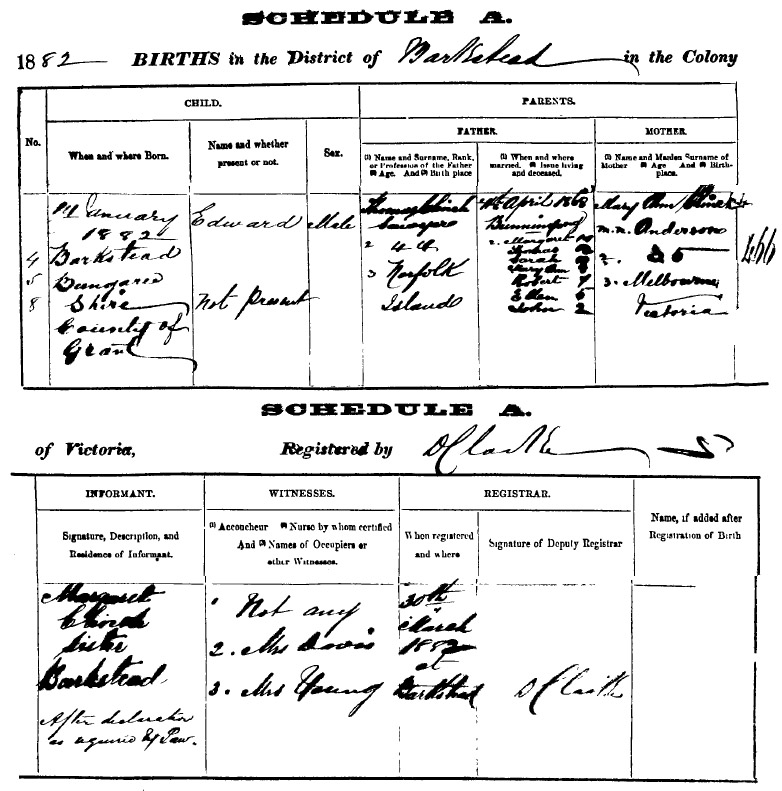 SCHEDULE A.
1882 BIRTHS in the District of Barkstead in the Colony
CHILD. PARENTS.
No. When and where Born. Name and whether present or not. Sex. FATHER. MOTHER.
(1) Name and Surname, Rank, or Profession of the Father (2) Age. And (3) Birth place
(1) When and where married. (2) Issue living and deceased.
(1) Name and Maiden Surname of Mother (2) Age (3) Birth-place.
January
1882
Barkstead
Bungaree
Shire
County of
Grant
4
5
8
Edward
Not Present
Male
2 44
3 Norfolk
Island
April 1868
Buninyong
2. Margaret
Thomas
Sarah
Mary Ann
Robert
Ellen 5
John 2
Mary Ann
m.n. Anderson
2. 35
3. Melbourne
Victoria
466
SCHEDULE A.
of Victoria, Registered by D Clarke
INFORMANT. WITNESSES. REGISTRAR.
Signature, Description, and Residence of Informant.
(1) Accoucheur (2) Nurse by whom certified And (3) Names of Occupiers or other Witnesses.
When registered and where
Signature of Deputy Registrar
Name, if added after Registration of Birth
Margaret
Sister
Barkstead
After declaration
as required by Law.
1 Not any
2. Mrs Davis
3. Mrs Young
30th
March
1882
at
Barkstead
D Clarke